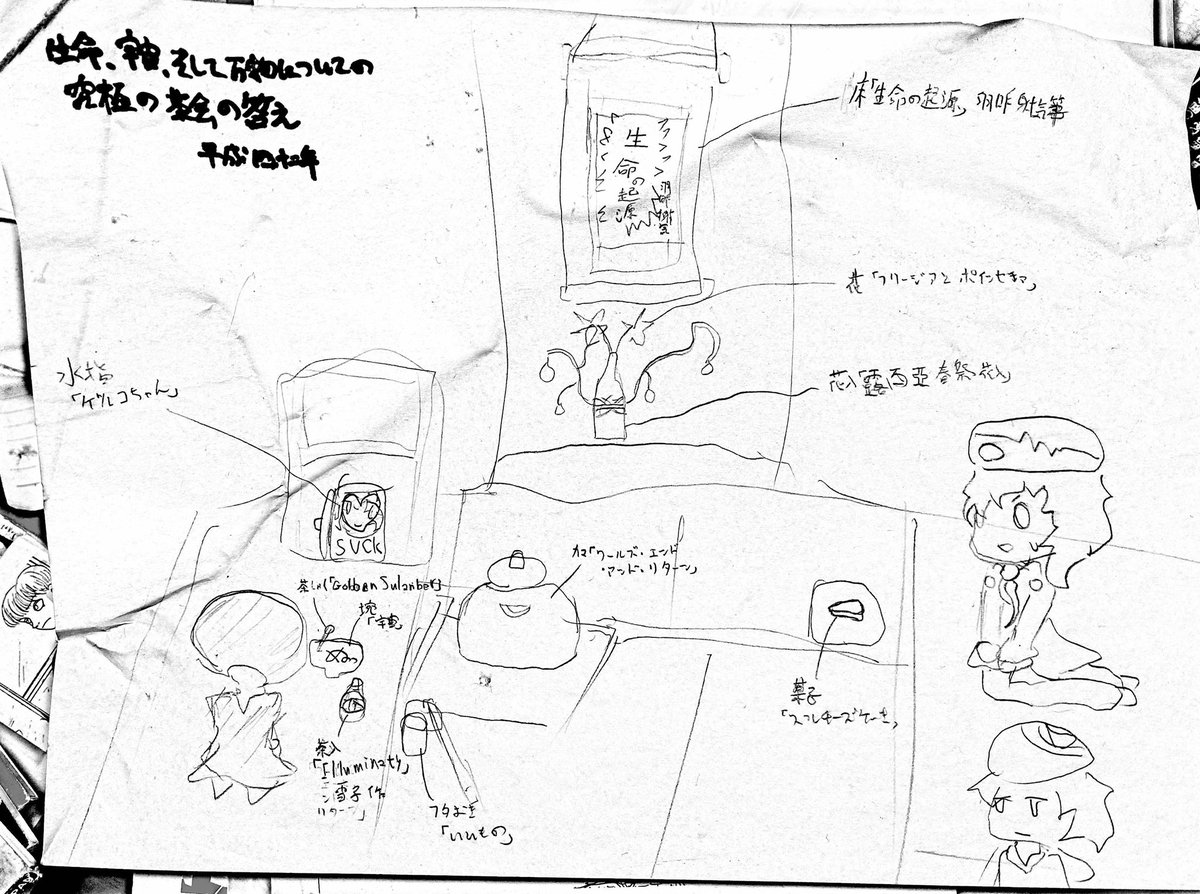 生命、宇宙、そして万物についての
究極の茶会の答え
平成四十二年
床「生命の起源」
生
命
の
起
源
花「フリージアとポインセチア」
花入「露西亞春祭花入」
水指
「ゲルコちゃん」
SUCK
カマ「ワールズ・エンド
・アンド・リターン」
茶しゃく「Golden Sularber」
碗
「宇宙」
ぬっ
菓子
「スフレチーズケーキ」
茶入
「Illuminaty
雪子作
リターン」
フタおき
「いいもの」